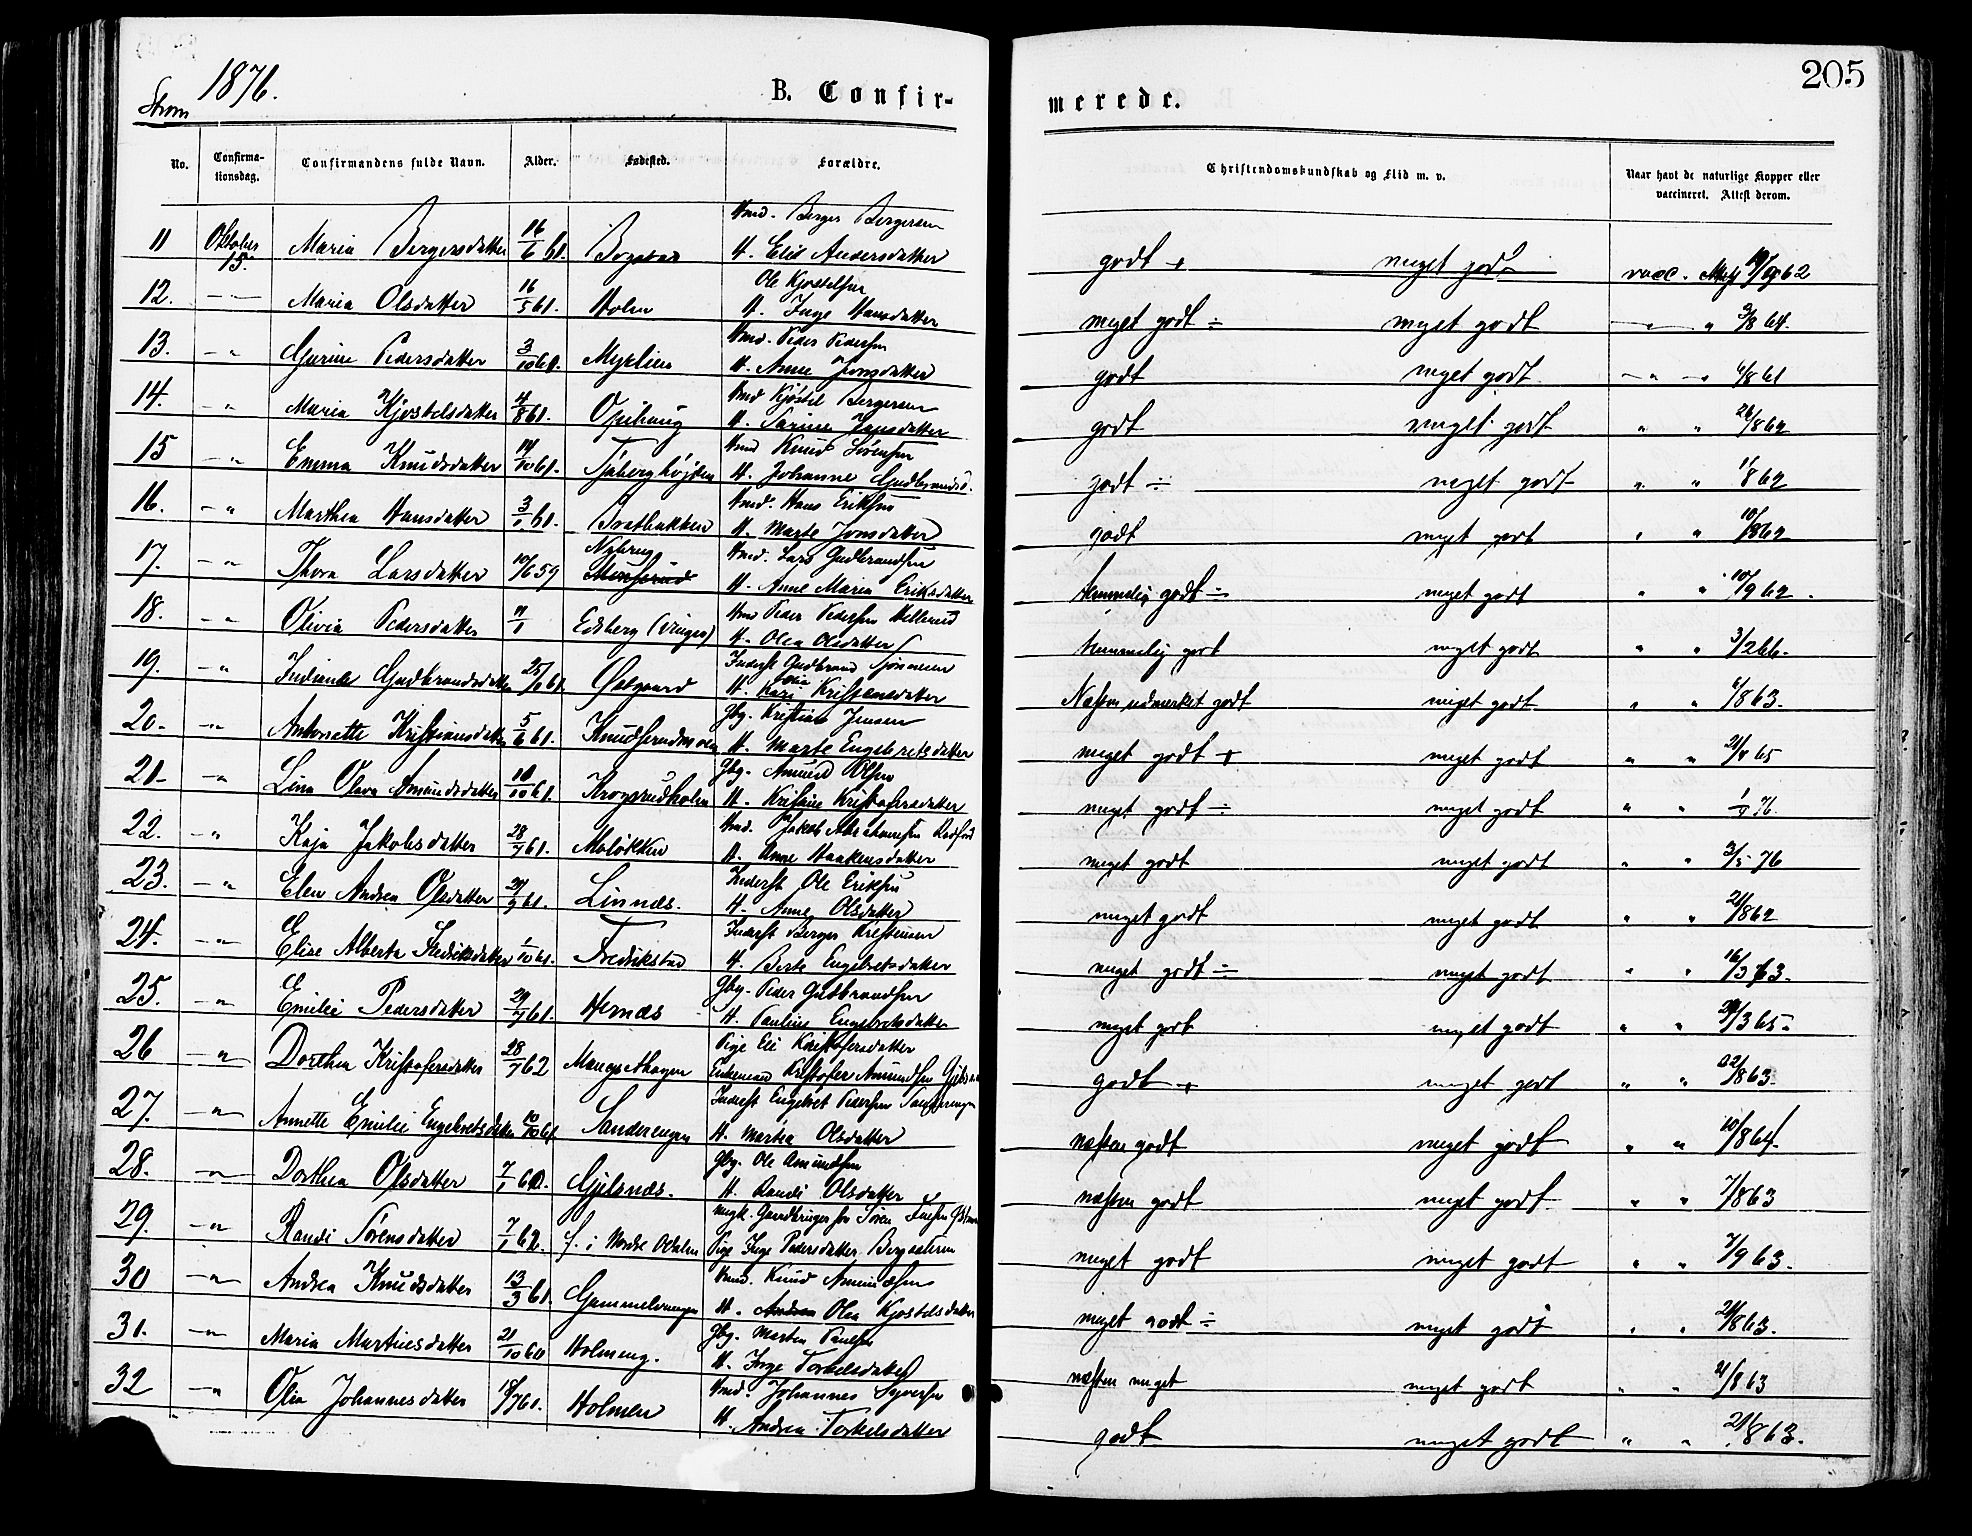 205
Strøm 1876.
B. Confir-
merede.
No.
Confirma-
tionsdag.
Confirmandens fulde Navn.
Alder.
Fødested.
Forældre.
Christendomskundskab og Flid m. v.
Naar havt de naturlige Kopper eller
vaccineret. Attest derom.
Hmd. Berger Bergersen
11 Oktober 15. Maria Bergersdatter 16/6 61. H. Elis Andersdatter godt + meget godt vacc.
Ole Kjostelsen
12. — Maria Olsdatter 16/5 61. Holm H. Inge Hansdatter meget godt ÷ meget godt — " 3/8 64.
Hmd. Peder Pedersen
13. — " Gurine Pedersdatter 3/10 61. Myrlien H. Anne Jonsdatter godt meget godt — " — 6/8 61
Hmd Kjøstel Bergersen
14. — " Maria Kjostelsdatter 4/8 61. Opihaug H. Karine Jansdatter godt meget godt " " 26/8 62
Hmd Knud Sørensen
15 — " Emma Knudsdatter 14/10 61. Tjaberghøjden H. Johanne Gudbrandsd. godt ÷ meget godt " " 11/8 62
Hmd. Hans Eriksen
16. — " Marthea Hansdatter 3/1 61. Bratbakken H. Marte Jonsdatter godt meget godt " " 10/8 62
Nybrug Hmd. Lars Gudbrandsen
17. — " Thora Larsdatter 10/6 59 H. Anne Maria Eriksdatter temmelig godt ÷ meget godt " " 10/9 62.
Hmd Peder Pedersen Hellerud
18. — " Olivia Pedersdatter Edsberg (Vinger) H. Olea Olsdatter temmelig godt meget godt " " 3/2 66.
Inderst Gudbrand
19. — " Gudbrandsdatter 25/1 61 Østgaard H. Kari Kristensdatter Næsten udmærket godt meget godt " " 6/8 63.
Gbr. Kristian Jensen
20. — " Antonette Kristiansdatter 5/6 61. Knudsrudmoen H. Marte Engebretsdatter meget godt + meget godt " " 21/8 65
Gbr. Amund Olsen
21. — " Lina Olava Amundsdatter 10/10 61. Krogsrudholm H. Kristine Kristofersdatter meget godt ÷ meget godt " " 1/9 76.
Hmd. Jakob Abrahamsen
22. — " Kaja Jakobsdatter 28/7 61. Moløkken H. Anne Haakensdatter meget godt meget godt " " 3/5 76
Inderst Ole Eriksen
23. — " Elen Andrea Olsdatter 27/9 61. Linnæs. H. Anne Olsdatter meget godt meget godt " " 21/8 62
Inderst Berger Kristensen
24. — " Elise Alberta Fredriksdatter 1/10 61. Fredrikstad H. Berte Engebretsdatter meget godt ÷ meget godt " "
Gbr. Peder Gulbrandsen
25. — " Emilie Pedersdatter 29/7 61. Hernæs H. Pauline Engebretsdatter meget godt meget godt " " 29/3 65.
Pige Eli Kristofersdatter
26 — " Dorthea Kristofersdatter 28/7 62 Mangsethagen Enkemand Kristofer Amundsen godt + meget godt " " 22/8 63.
Inderst Engebret Pedersen Sanderengen
27. — " Annette Emilie Engebretsdatter 10/10 61. Sanderengen H. Martea Olsdatter næsten godt meget godt " " 10/8 64.
Gbr. Ole Amundsen
28. — " Dorthea Olsdatter 7/1 60. Gjelsnæs. H. Randi Olsdatter næsten godt meget godt " " 7/8 63
29. — " Randi Sørensdatter 7/1 62. f. i Nordre Odalen Pige Inge Pedersdatter meget godt meget godt " " 7/9 63.
Hmd. Knud Amundsen
30 — " Andrea Knudsdatter 13/3 61. Gammelvangen H. Olea Kjostelsdatter meget godt ÷ meget godt " " 24/8 63.
Gbr. Martin Paulsen
31. — " Maria Martinesdatter 21/10 60 Holmeng. H. Inge Torkelsdatter næsten meget meget godt " " 21/8 63
Hmd. Johannes Syversen
32 — " Olea Johannesdatter 18/7 61. Holmen H. Andrea Torkelsdatter godt meget godt " " 21/8 63.